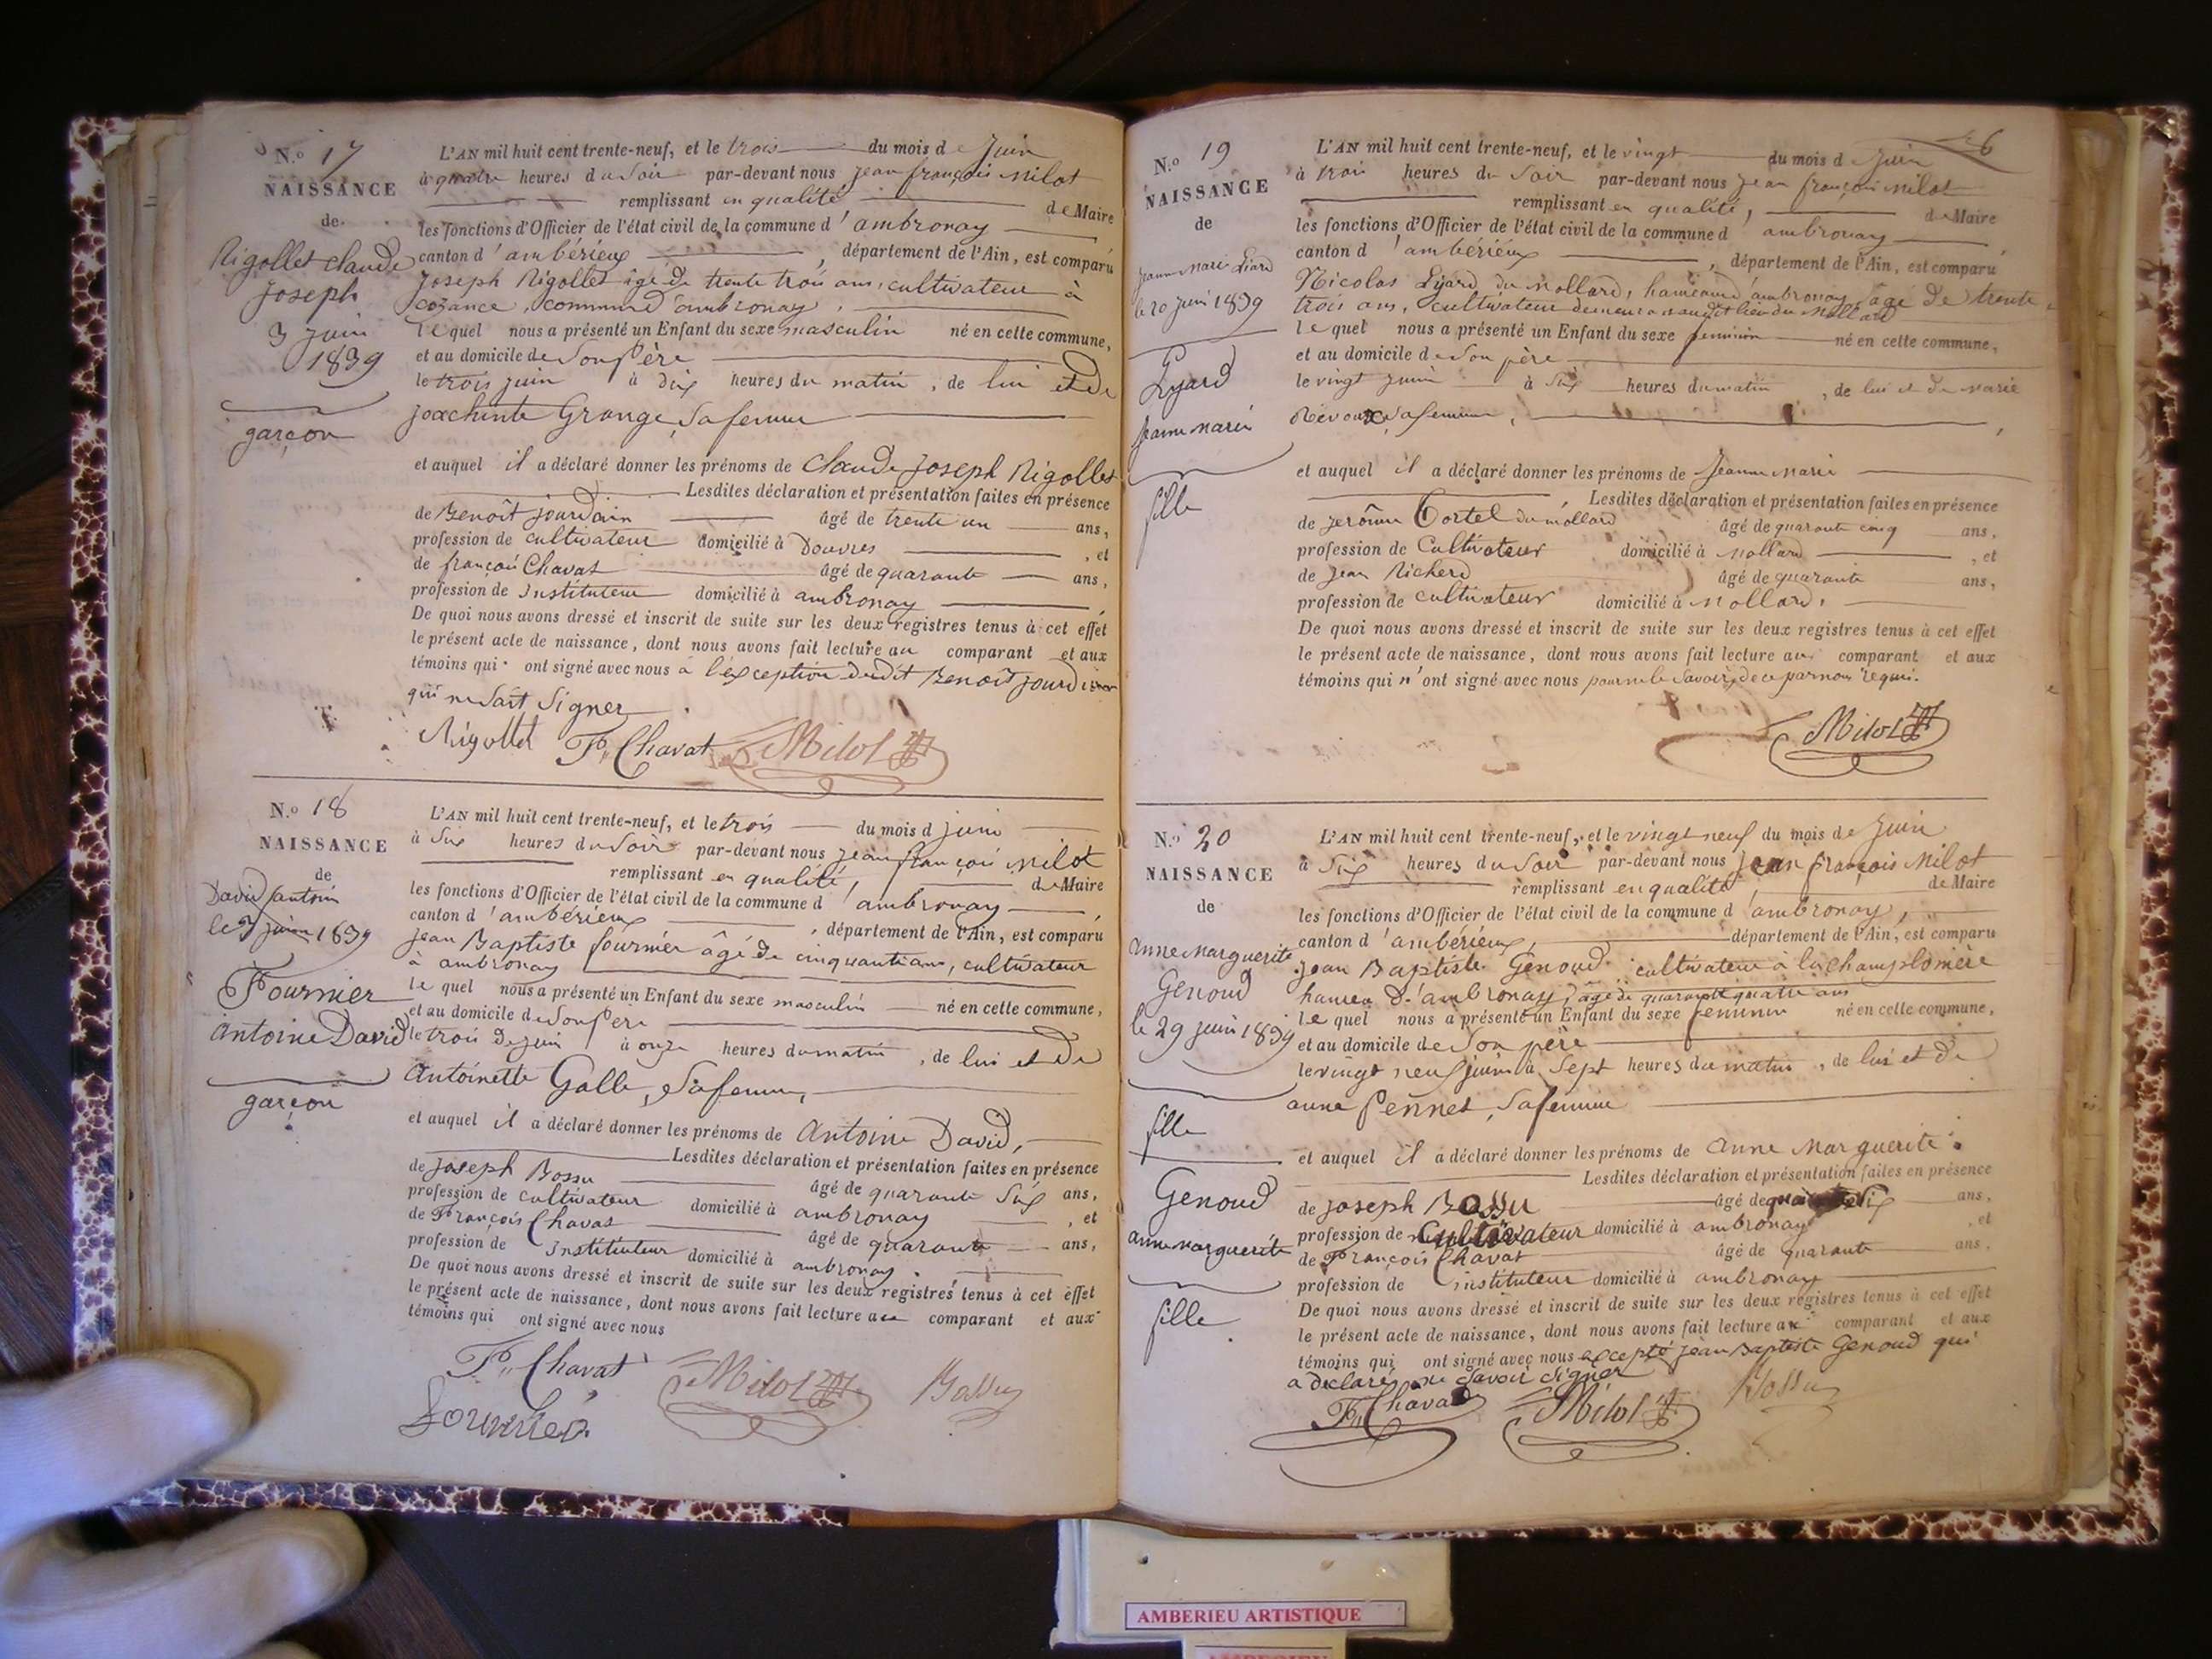 N.o 17
NAISSANCE
de
Rigollet claude
joseph
3 juin
1839
garçon
L'AN mil huit cent trente-neuf, et le trois du mois de Juin
à quatre heures du Soir par-devant nous jean françois Milot
remplissant en qualité de Maire
les fonctions d'Officier de l'état civil de la commune d'ambronay
canton d'ambérieux, département de l'Ain, est comparu
joseph Rigollet âgé de trente trois ans, cultivateur à
cozance, commune d'ambronay,
lequel nous a présenté un Enfant du sexe masculin né en cette commune,
et au domicile de Son Père
le trois juin à dix heures du matin, de lui et de
joachinte Grange, Sa femme
et auquel il a déclaré donner les prénoms de Claude Joseph Rigollet
Lesdites déclaration et présentation faites en présence
de Benoît jourdain âgé de trente un ans,
profession de cultivateur domicilié à Douvres, et
de françois Chavat âgé de quarante ans,
profession de Instituteur domicilié à ambronay
De quoi nous avons dressé et inscrit de suite sur les deux registres tenus à cet effet
le présent acte de naissance, dont nous avons fait lecture au comparant et aux
témoins qui ont signé avec nous à l'exception dudit Benoît jourdain
qui ne Sait Signer
Rigollet F. Chavat Milot
N.o 18
NAISSANCE
de
David antoin
le 3 juin 1839
Fournier
Antoine David
garçon
L'AN mil huit cent trente-neuf, et le trois du mois d juin
à Six heures du Soir par-devant nous jean françois Milot
remplissant en qualité, de Maire
les fonctions d'Officier de l'état civil de la commune d'ambronay
canton d'ambérieux, département de l'Ain, est comparu
jean Baptiste fournier âgé de cinquante ans, cultivateur
à ambronay
lequel nous a présenté un Enfant du sexe masculin né en cette commune,
et au domicile de Son Père
le trois de juin à onze heures du matin, de lui et de
Antoinette Galle, Sa femme,
et auquel il a déclaré donner les prénoms de Antoine David,
Lesdites déclaration et présentation faites en présence
de joseph Bossu âgé de quarante Six ans,
profession de cultivateur domicilié à ambronay, et
de François Chavat âgé de quarante ans,
profession de Instituteur domicilié à ambronay.
De quoi nous avons dressé et inscrit de suite sur les deux registres tenus à cet effet
le présent acte de naissance, dont nous avons fait lecture au comparant et aux
témoins qui ont signé avec nous
F. Chavat Milot Bossu
fournier
6
N.o 19
NAISSANCE
de
Jeanne Marie Liard
le 20 juin 1839
Lyard
jeanne marie
fille
L'AN mil huit cent trente-neuf, et le vingt du mois de Juin
à trois heures du Soir par-devant nous jean françois Milot
remplissant en qualité, de Maire
les fonctions d'Officier de l'état civil de la commune d'ambronay
canton d'ambérieux, département de l'Ain, est comparu
Nicolas Lyard du Mollard, hameau d'ambronay, âgé De trente
trois ans, cultivateur demeurant audit lieu du Mollard
lequel nous a présenté un Enfant du sexe feminin né en cette commune,
et au domicile de Son père
le vingt juin à Six heures du matin, de lui et de Marie
Révoux, Sa femme,
et auquel il a déclaré donner les prénoms de Jeanne Marie
Lesdites déclaration et présentation faites en présence
de jerôme Tortel du mollard âgé de quarante cinq ans,
profession de Cultivateur domicilié à Mollard, et
de jean Richerd âgé de quarante ans,
profession de cultivateur domicilié à Mollard.
De quoi nous avons dressé et inscrit de suite sur les deux registres tenus à cet effet
le présent acte de naissance, dont nous avons fait lecture au comparant et aux
témoins qui n'ont signé avec nous pour ne le Savoir, de ce par nous requis.
Milot
N.o 20
NAISSANCE
de
Anne Marguerite
Genoud
le 29 juin 1839
fille
Genoud
anne marguerite
fille
L'AN mil huit cent trente-neuf, et le vingt neuf du mois de Juin
à Six heures du Soir par-devant nous jean françois Milot
remplissant en qualité de Maire
les fonctions d'Officier de l'état civil de la commune d'ambronay,
canton d'ambérieux, département de l'Ain, est comparu
jean Baptiste Genoud cultivateur à la champlomière
hameau d'ambronay, âgé de quarante quatre ans
lequel nous a présenté un Enfant du sexe feminin né en cette commune,
et au domicile de Son père
le vingt neuf juin à Sept heures du matin, de lui et de
anne Pennet, Sa femme
et auquel il a déclaré donner les prénoms de anne Marguerite.
Lesdites déclaration et présentation faites en présence
de joseph Bossu âgé de Six ans,
profession de Cultivateur domicilié à ambronay, et
de François Chavat âgé de quarante ans,
profession de instituteur domicilié à ambronay
De quoi nous avons dressé et inscrit de suite sur les deux registres tenus à cet effet
le présent acte de naissance, dont nous avons fait lecture au comparant et aux
témoins qui ont signé avec nous excepté jean Baptiste Genoud qui
a déclaré ne Savoir Signer
F. Chavat Milot Bossu
AMBERIEU ARTISTIQUE